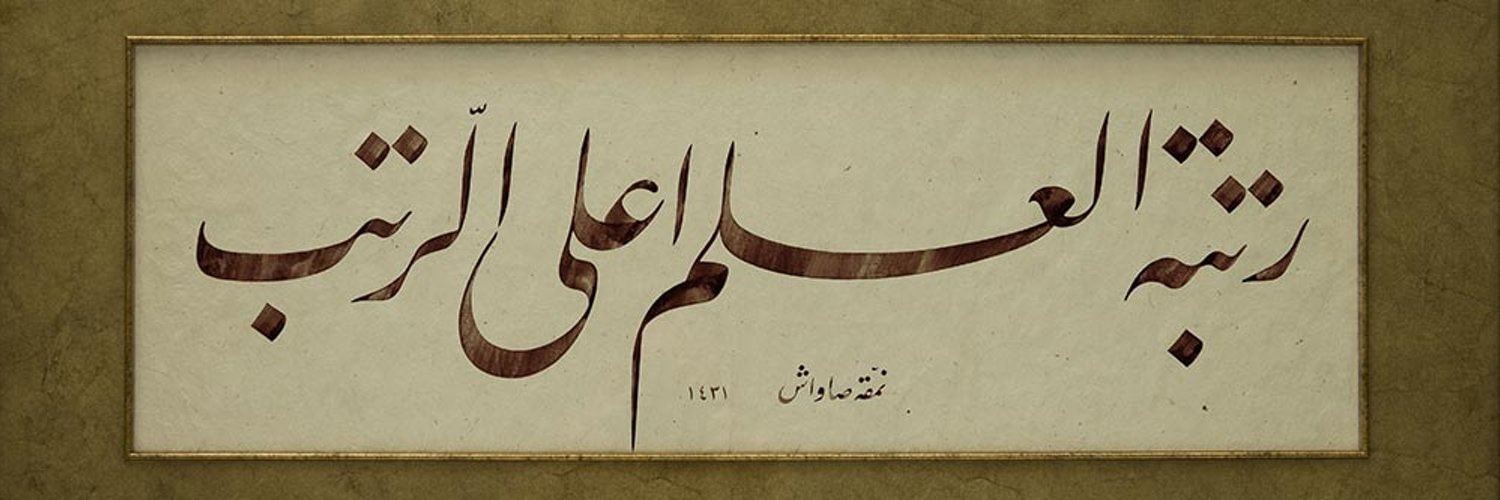 رتبة العلم اعلى الرّتب
نمقه صاواش ١٤٣١